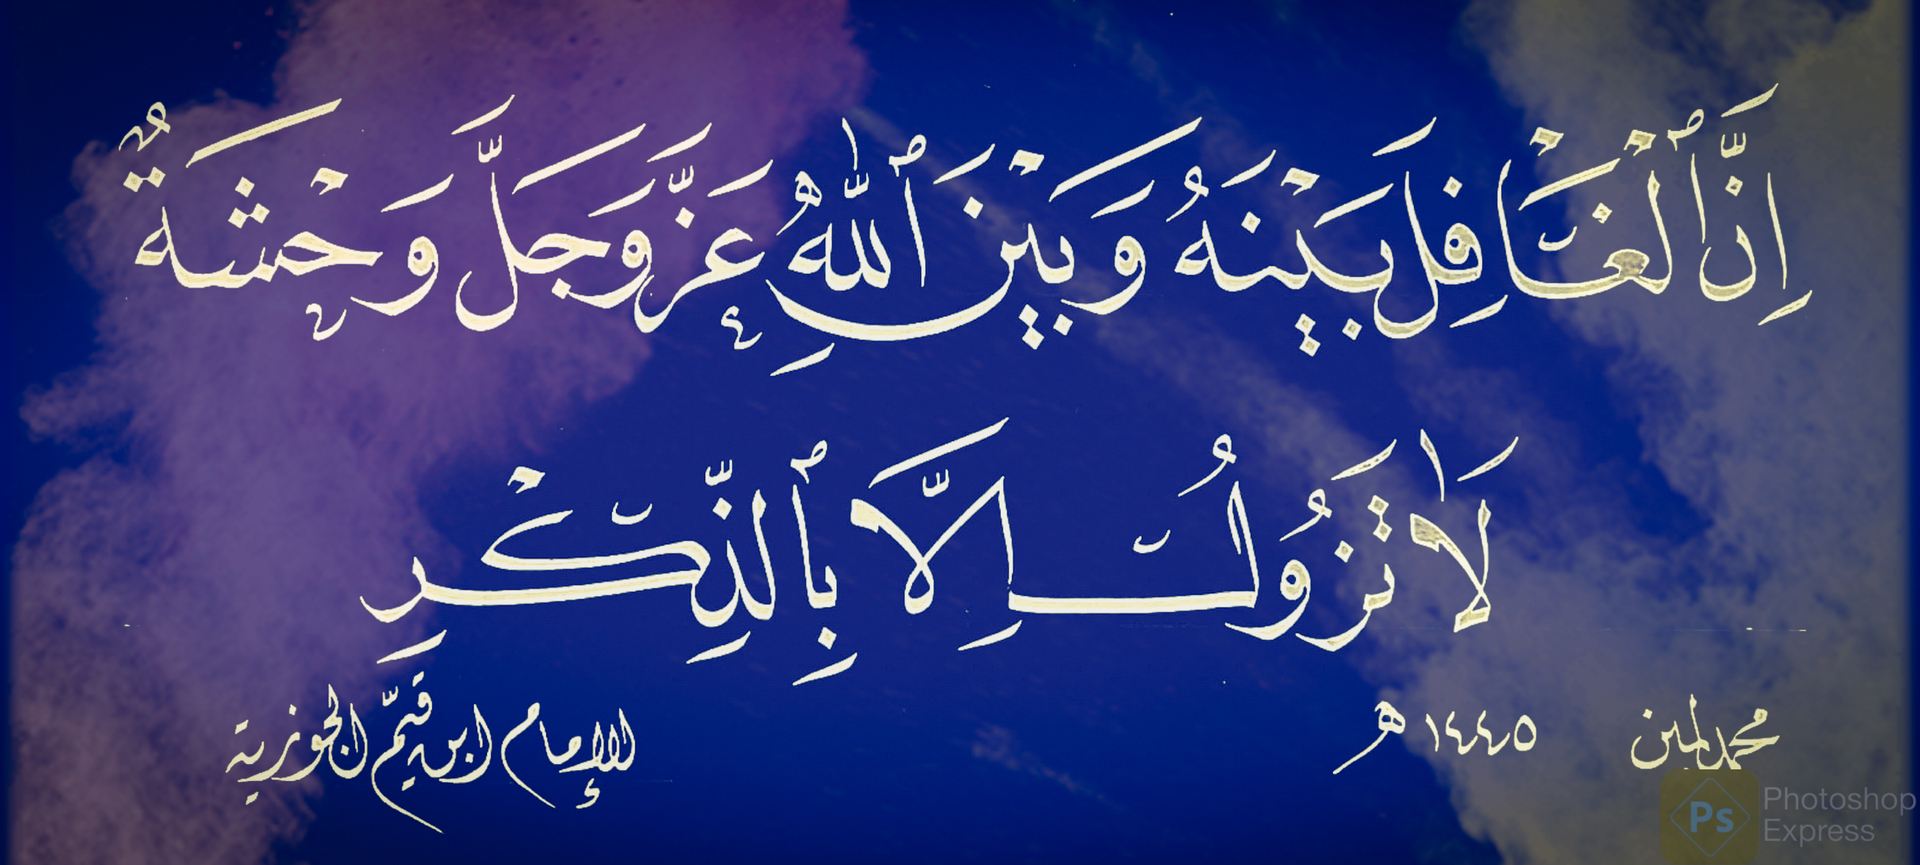 إِنَّ ٱلْغَافِلَ بَيْنَهُ وَبَيْنَ ٱللّٰهِ عَزَّ وَجَلَّ وَحْشَةٌ
لَا تَزُولُ إِلَّا بِٱلذِّكْرِ
الإمام ابن قيّم الجوزية
١٤٤٥ هـ
Photoshop
Express
Ps